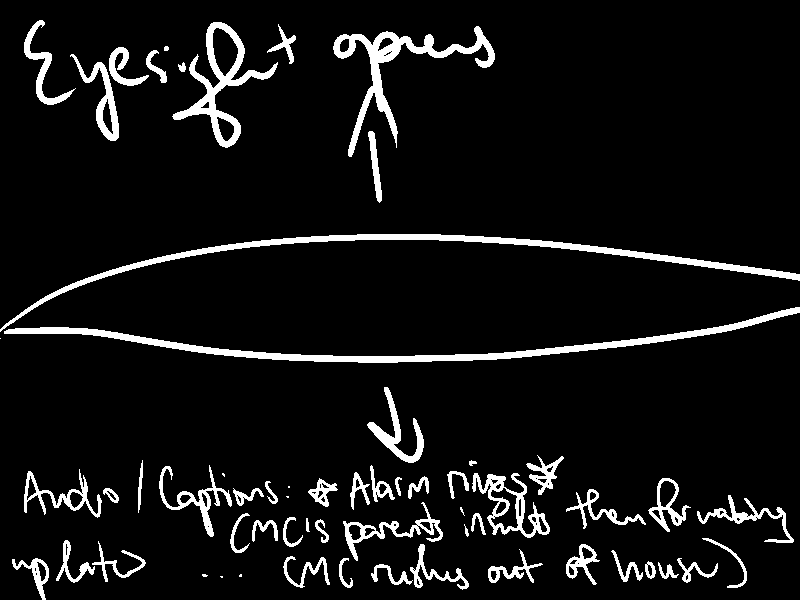 Eyesight opens
Audio / Captions: * Alarm rings *
(MC's parents insults them for waking
up late) ... (MC rushes out of house)